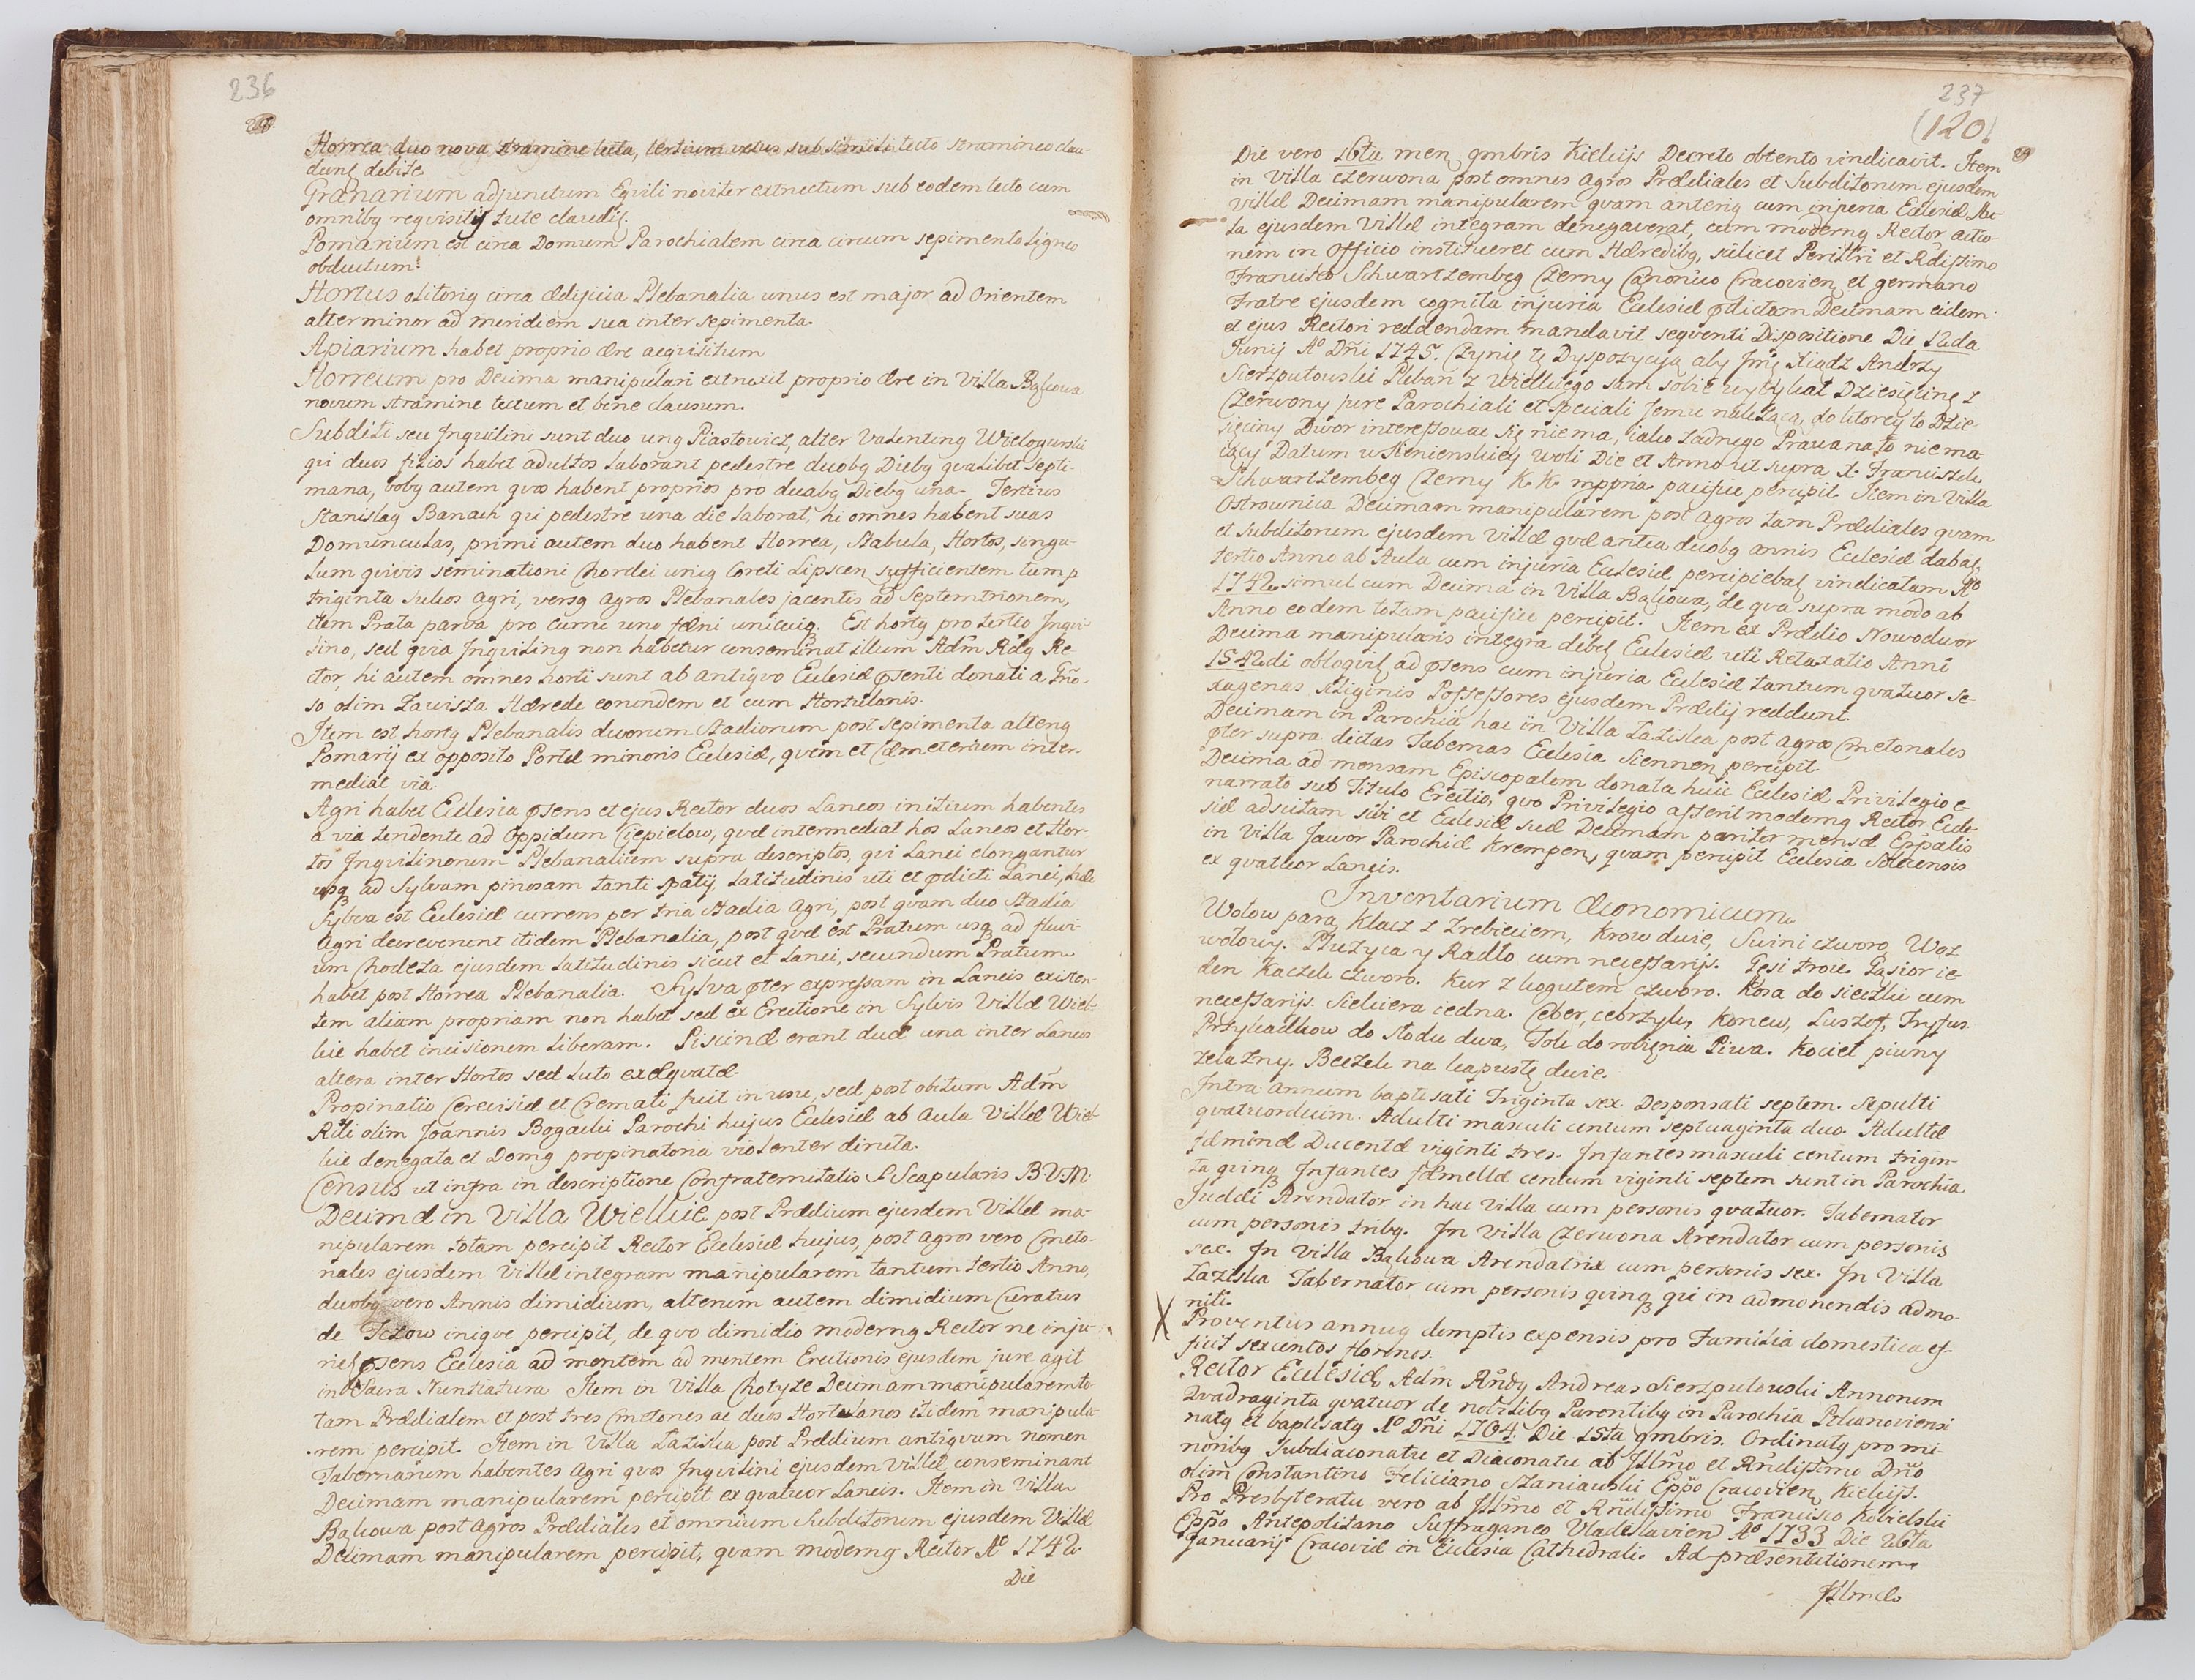 236
Horrea duo nova stramine tecta, tertium vetus sub simili tecto stramineo clau-
dunt debite
Granarium adjunctum Eqvili noviter extructum sub eodem tecto cum
omnibq reqvisitis tute claudit.
Pomarium est circa Domum Parochialem circa circum sepimento ligneo
obductum.
Hortus olitoriq circa ædificia Plebanalia unus est major ad Orientem
alter minor ad meridiem sua inter sepimenta.
Apiarium habet proprio ære aeqvisitum
Horreum pro Decima manipulari extruxit proprio ære in Villa Bąkowa
novum stramine tectum et bene clausum.
Subditi seu Inqvilini sunt duo unq Piastowicz, alter Valentinq Wielogurski
qvi duos filios habet adultos laborant pedestre duobq Diebq qvalibet septi-
mana, bobq autem qvos habent proprios pro duabq Diebq una. Tertius
Stanislaq Banach qvi pedestre una die laborat, hi omnes habent suas
Domunculas, primi autem duo habent Horrea, Stabula, Hortos, singu-
lum qvivis seminationi Chordei uniq Coreti Lipscen sufficientem tum p
triginta sulcos agri, versq agros Plebanales jacentes ad Septemtrionem,
item Prata parva pro curru uno fæni unicuiq. Est hortq pro tertio Inqvi-
lino, sed qvia Inqviling non habetur conseminat illum Adm Rdq Re-
ctor, hi autem omnes horti sunt ab antiqvo Ecclesiæ pnti donati a Gño-
so olim Zawisza Hærede eorundem et cum Hortulanis.
Item est hortq Plebanalis duorum stadiorum post sepimenta alteriq
Pomarij ex opposito Portæ minoris Ecclesiæ, qvem et Cæmeterium inter-
mediat via
Agri habet Ecclesia psens et ejus Rector duos Laneos initium habentes
a via tendente ad Oppidum Ciepielow, qvæ intermediat hos Laneos et Hor-
tos Inqvilinorum Plebanalium supra descriptos, qvi Lanei elongantur
usq ad Sylvam pinosam tanti spatij, latitudinis uti et pdicti Lanei, hæc
Sylva est Ecclesiæ currens per tria stadia agri, post qvam duo Stadia
agri decreverunt itidem Plebanalia, post qvæ est Pratum usq ad fluvi-
um Chodcza ejusdem latitudinis sicut et Lanei, secundum Pratum
habet post Horrea Plebanalia. Sylva pter expressam in Laneis existen-
tem aliam propriam non habet sed ex Erectione in Sylvis Villæ Wiel-
kie habet incisionem liberam. Piscinæ erant duæ una inter Laneos
altera inter Hortos sed luto exæqvatæ.
Propinatio Cerevisiæ et Cremati fuit in usu, sed post obitum Adm
Rdi olim Joannis Bogacki Parochi hujus Ecclesiæ ab Aula Villæ Wiel-
kie denegata et Domq propinatoria violenter diruta.
Census ut infra in descriptione Confraternitatis S. Scapularis B V M.
Decimæ in Villa Wielkie post Prædium ejusdem Villæ ma-
nipularem totam percipit Rector Ecclesiæ hujus, post agros vero Cmeto-
nales ejusdem Villæ integram manipularem tantum tertio Anno,
duobq vero Annis dimidium, alterum autem dimidium Curatus
de iniqve percipit, de qvo dimidio modernq Rector ne inju-
riet psens Ecclesia ad mentem ad mentem Erectionis ejusdem jure agit
in Sacra Nuntiatura Item in Villa Chotyze Decimam manipularem to-
tam Prædialem et post tres Cmetones ac duos Hortulanos itidem manipula-
rem percipit. Item in Villa Laziska post Prædium antiqvum nomen
Tabernarum habentes Agri qvos Inqvilini ejusdem Villæ conseminant
Decimam manipularem percipit ex qvatuor Laneis. Item in Villa
Bąkowa post Agros Prædiales et omnium Subditorum ejusdem Villæ
Decimam manipularem percipit, qvam modernq Rector Aº 1742.
Die
237
(120)
Die vero 16ta men qmbris Kielcijs Decreto obtento vindicavit. Item
in Villa Czerwona post omnes agros Prædiales et Subditorum ejusdem
Villæ Decimam manipularem qvam anteriq cum injuria Ecclesiæ Au-
la ejusdem Villæ integram denegaverat, cum modernq Rector actio-
nem in Officio institueret cum Hæredibq, scilicet Perillri et Rdissimo
Francisco Schwartzembeg Czerny Canonico Cracovien et germano
Fratre ejusdem cognita injuria Ecclesiæ pdictam Decimam eidem
et ejus Rectori reddendam mandavit seqventi Dispositione Die 12da
Junij Aº Dñi 1745. Czynię tę Dyspozycyą aby Jmć Xiądz Andrzy
Sierzputowski Pleban z Wielkiego sam sobie wytykał Dziesięcinę z
Czerwony jure Parochiali et speciali Jemu należącą, do ktorey to Dzie-
sięciny Dwor interessować się nie ma, iako żadnego Prawa na to nie ma-
iący Datum w Sienienskiey Woli Die et Anno ut supra X. Franciszek
Schwartzembeg Czerny K. K. mppria pacifice percipit. Item in Villa
Ostrownica Decimam manipularem post Agros tam Prædiales qvam
et Subditorum ejusdem Villæ qvæ antea duobq annis Ecclesiæ dabat,
tertio Anno ab Aula cum injuria Ecclesiæ percipiebat, vindicatam Aº
1742 simul cum Decima in Villa Bąkowa, de qva supra modo ab
Anno eodem totam pacifice percipit. Item ex Prædio Nowodwor
Decima manipularis integra debet Ecclesiæ uti Retaxatio Anni
1542di obloqvit, ad psens cum injuria Ecclesiæ tantum qvatuor se-
xagenas siliginis Possessores ejusdem Prædij reddunt.
Decimam in Parochia hac in Villa Laziska post agros Cmetonales
pter supra dictas Tabernas Ecclesia Siennen percipit.
Decima ad mensam Episcopalem donata huic Ecclesiæ Privilegio e-
narrato sub Titulo Erectio, qvo Privilegio asserit modernq Rector Eccle-
siæ adscitam sibi et Ecclesiæ suæ Decimam pariter mensæ Eppalis
in Villa Jawor Parochiæ Krempen, qvam percipit Ecclesia Solecensis
ex qvatuor Laneis.
Inventarium Œconomicum
Wołow para, Klacz z Zrebieciem, Krow dwie, Swini czworo, Woz
wołowy. Płużyca y Radło cum necessarijs. Gęsi troie Gąsior ie-
den Kaczek czworo. Kur z kogutem czworo. Kosa do sieczki cum
necessarijs. Siekiera iedna. Ceber, cebrzyk, Konew, Lusztof, Fryfus.
Przykadkow do słodu dwa, Tok do robięnia Piwa. Kocieł piwny
żelazny. Beczek na kapustę dwie.
Intra annum baptisati Triginta sex. Desponsati septem. Sepulti
qvatuordecim. Adulti masculi centum septuaginta duo. Adultæ
fæminæ Ducentæ viginti tres. Infantes masculi centum trigin-
ta qvinq Infantes fæmellæ centum viginti septem sunt in Parochia
Judæi Arendator in hac Villa cum personis qvatuor. Tabernator
cum personis tribq. In Villa Czerwona Arendator cum personis
sex. In Villa Bąkowa Arendatrix cum personis sex. In Villa
Laziska Tabernator cum personis qvinq qvi in admonendis admo-
niti.
X
Proventus annuq demptis expensis pro Familia domestica ef-
ficit sexcentos florenos.
Rector Ecclesiæ Adm Rndq Andreas Sierzputowski Annorum
Qvadraginta qvatuor de nobilibq Parentibq in Parochia
natq et baptisatq Aº Dñi 1704. Die 15ta qmbris. Ordinatq pro mi-
noribq Subdiaconatu et Diaconatu ab Illmo et Rndissimo Dño
olim Constantino Feliciano Szaniawski Eppo Cracovien Kielcijs.
Pro Presbyteratu vero ab Illmo et Rndissimo Francisco Kobielski
Eppo Antepolitano Suffraganeo Vladislavien Aº 1733 Die 26ta
Januarij Cracoviæ in Ecclesia Cathedrali. Ad præsentationem